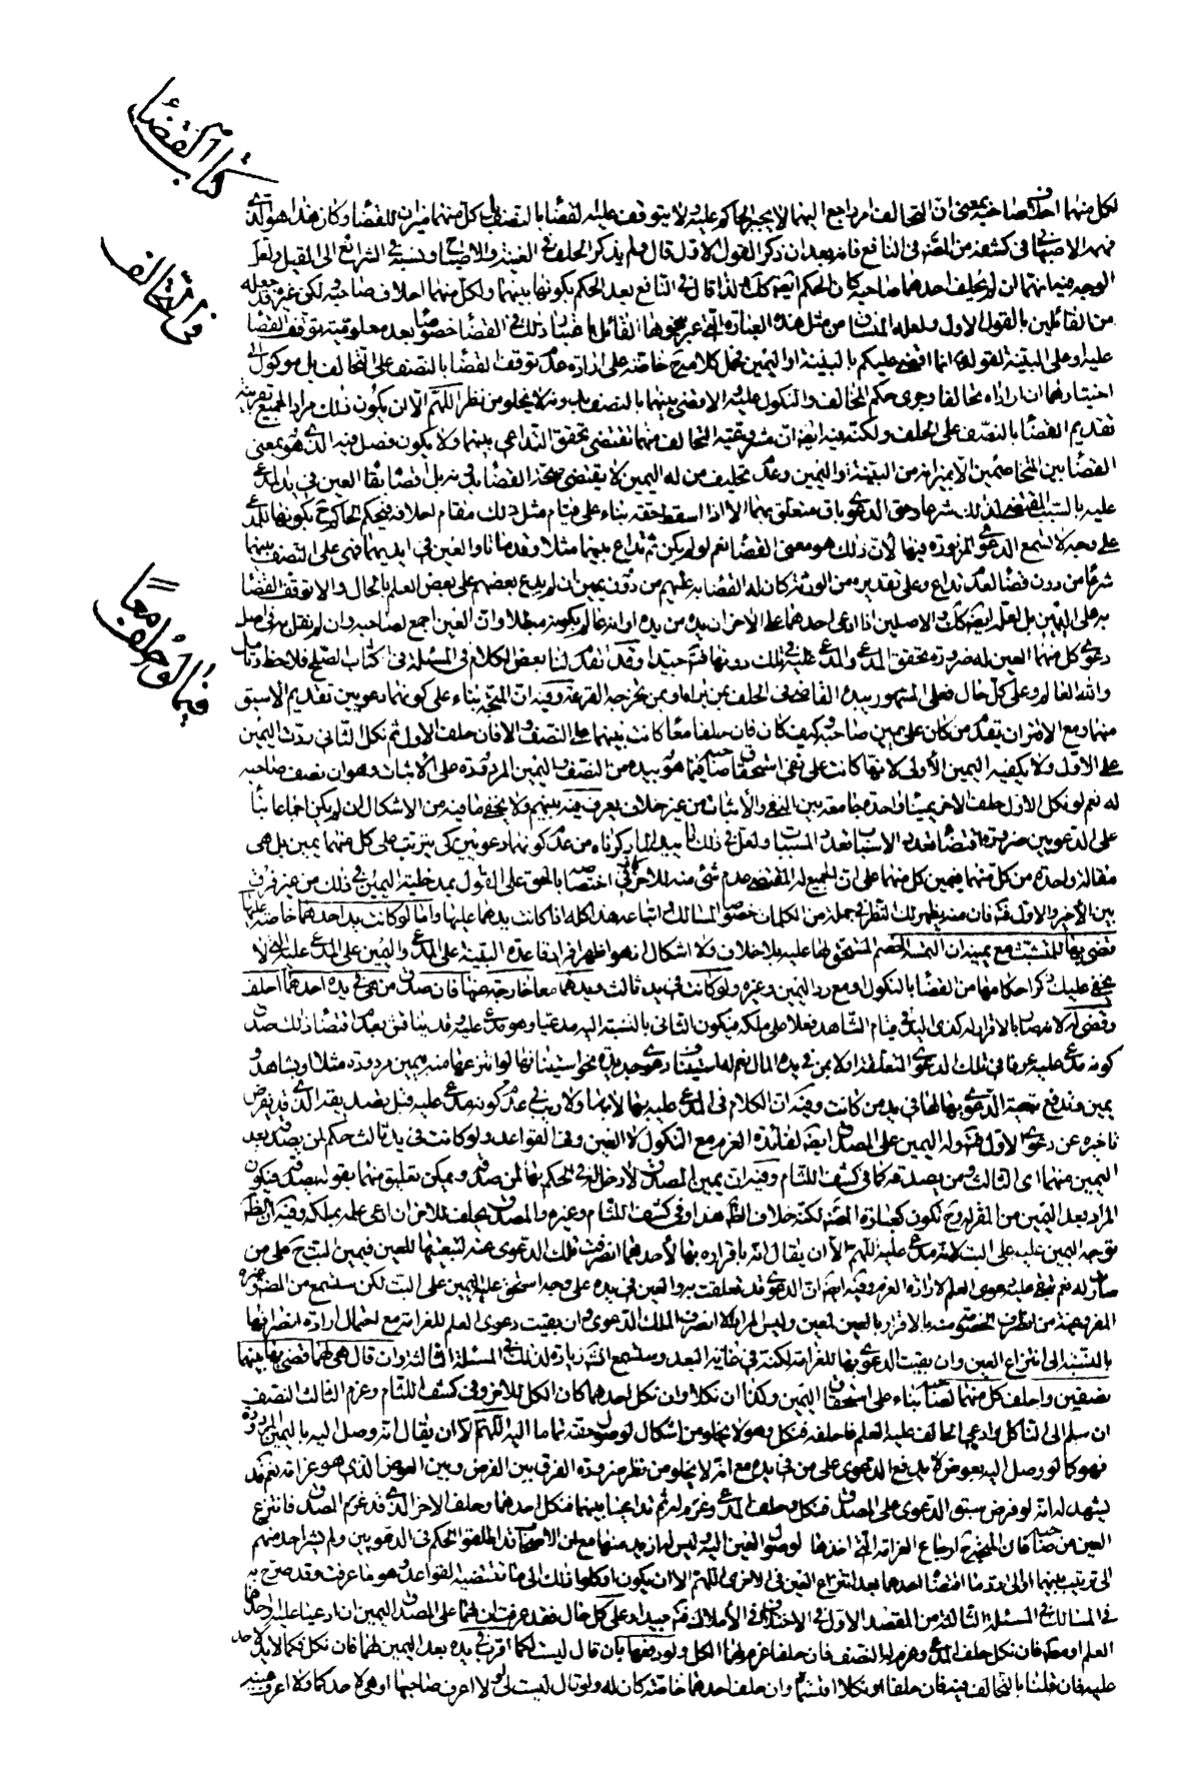 كتاب القضاء
في التحالف
فيما لو حلفا معا
لكل منهما احلاف صاحبه بمعنى ان التحالف امر راجع اليهما لا يجبر الحاكم عليه ولا يتوقف عليه القضاء بالتنصيف بل كل منهما ميزان للقضاء وكان هذا هو الذي
فهمه الاصبهاني في كشفه من المصنف في النافع فانه بعد ان ذكر القول الاول قال ولم يذكر الحلف في الغنية والاصباح ونسبه في الشرائع الى القيل ولعل
الوجه فيه انهما ان لم يحلف احدهما صاحبه كان الحكم ايضا كك ولذا قال في النافع بعد الحكم بكونها بينهما ولكل منهما احلاف صاحبه لكن غيره قد جعله
من القائلين بالقول الاول ولعله المنساق من مثل هذه العبارة التي عبر بنحوها القائل باعتبار ذلك في القضاء خصوصا بعد معلومية توقف القضاء
عليه او على البينة لقوله انما اقضي عليكم بالبينة او اليمين فحمل كلام خاصة على ارادة عدم توقف القضاء بالتنصيف على التحالف بل موكول الى
اختيارهما ان اراداه تحالفا وجرى حكم التحالف والنكول عليه والا قضي بينهما بالتنصيف بدونه لا يخلو من نظر اللهم الا ان يكون ذلك مراد الجميع بقرينة
تقديم القضاء بالتنصيف على الحلف ولكنه فيه ايضا ان مشروعية التحالف منهما تقتضي تحقق التداعي بينهما ولا يكون فصل فيه الذي هو بمعنى
القضاء بين المتخاصمين الا بميزانه من البينة او اليمين وعدم تحليف من له اليمين لا يقتضي صحة القضاء بدونه بل اقصاه بقاء العين في يد المدعى
عليه بالسبب المقتضي لذلك شرعا وحق الدعوى باق متعلق بهما الا اذا اسقط حقه بناء على قيام مثل ذلك مقام احلافه فيحكم الحاكم ح بكونها للمدعى
على وجه لا تسمع الدعوى المزبورة فيها لان ذلك هو معنى القضاء نعم لو لم يكن ثم تداع بينهما مثلا وقد ماتا والعين في ايديهما فهي على التنصيف بينهما
شرعا من دون قضاء لعدم تداع وعلى تقديره من الورثة كان له القضاء به عليهم من دون يمين ان لم يدع بعضهم على بعض العلم بالحال والا توقف القضاء
به على اليمين بل لعله ايضا كك في الاصلين اذا ادعى احدهما على الاخر ان يده من يده او انه عالم بكونه مبطلا وان العين اجمع لصاحبه وان لم نقل به في اصل
دعوى كل منهما العين له ضرورة تحقق المدعي والمدعى عليه في تلك دونها فتأمل جيدا وقد تقدم لنا بعض الكلام في المسئلة في كتاب الصلح فلاحظ وتأمل
والله العالم وعلى كل حال فعلى المشهور يبدء القاضي في الحلف بمن يراه او بمن تخرجه القرعة وفيه ان المتجه بناء على كونهما دعويين تقديم الاسبق
منهما ومع الاقتران يقدم من كان على يمين صاحبه وكيف كان فان حلفا معا كانت بينهما على التنصيف والا فان حلف الاول ثم نكل الثاني ردت اليمين
على الاول ولا يكفيه اليمين الاولى لانها كانت على نفي استحقاق صاحبه فيما هو بيده من النصف واليمين المردودة على الاثبات وهو ان نصف صاحبه
له نعم لو نكل الاول حلف الاخر يمينا واحدة جامعة بين النفي والاثبات من غير خلاف يعرف فيه بينهم ولا يخفى ما فيه من الاشكال ان لم يكن اجماعا بناء
على الدعويين ضرورة اقتضاء تعدد الاسباب تعدد المسببات ولعل في ذلك تأييدا لما ذكرناه من عدم كونها دعويين كي يترتب على كل منهما يمين بل هي
مقالة واحدة من كل منهما فيمين كل منهما على ان الجميع له المقتضي عدم شئ منه للاخر كاف في اختصاصه بالحق على القول بمدخلية اليمين في ذلك من غير فرق
بين الاخر والاول فتأمل فان منه يظهر لك النظر في جملة من الكلمات خصوصا المسالك واتباعه هذا كله اذا كانت يدهما عليها واما لو كانت يد احدهما خاصة عليها
قضي بها للمتشبث مع يمينه ان التمسه الخصم المستحق لها عليه بلا خلاف ولا اشكال اذ هو اظهر افراد قاعدة البينة على المدعي واليمين على المدعى عليه اذ لا
يخفى عليك ذكر احكامها من القضاء بالنكول او مع رد اليمين وغيره ولو كانت في يد ثالث ويدهما معا خارجة عنها فان صدق من هي في يده احدهما احلف
وقضي له لانه صار بالاقرار له كذي اليد في قيام الشاهد فعلا على ملكه فيكون الثاني بالنسبة اليه مدعيا وهو مدعى عليه وقد يناقش بعدم اقتضاء ذلك صدق
كونه مدعى عليه عرفا في تلك الدعوى المتعلقة اولا بمن في يده المال نعم له استيناف دعوى جديدة نحو استينافها لو انتزعها منه بيمين مردودة مثلا او بشاهد و
يمين ويندفع بتبعية الدعوى بها لها في يد من كانت وفيه ان الكلام في المدعى عليه بها لا بها ولا ريب في عدم كونه مدعى عليه قبل تصديقه الذي قد يفرض
تاخره عن دعوى الاول فتأمل وله اليمين على المصدق ايضا لفائدة الغرم مع النكول لا العين وفي القواعد ولو كانت في يد ثالث حكم لمن يصدقه بعد
اليمين منهما اي الثالث ومن يصدقه كما في كشف اللثام وفيه ان يمين المصدق لا دخل له في الحكم بها لمن صدقه ويمكن تعليق منهما بقوله يصدقه فيكون
المراد بعد اليمين من المقر له وح تكون كعبارة المصنف لكنه خلاف الظاهر هذا وفي كشف اللثام وغيره والمصدق يحلف للاخر ان ادعى علمه بملكه وفيه ان الظاهر
توجه اليمين عليه على البت لانه مدعى عليه اللهم الا ان يقال انه باقراره بها لاحدهما انصرفت تلك الدعوى عنه لتبعيتها للعين فيمين البت ح على من
صارت له نعم تبقى عليه دعوى العلم لارادة الغرم وفيه ايضا ان الدعوى قد تعلقت به والعين في يده على وجه استحق عليه اليمين على البت لكن ستسمع من المصنف وغيره
المفروغية من انصراف الخصومة عنه بالاقرار بالعين لمعين وليس المراد الا انصراف الملك الدعوى وان بقيت دعوى العلم للغرامة مع احتمال ارادة انصرافها
بالنسبة الى انتزاع العين وان بقيت الدعوى بها للغرامة لكنه في غاية البعد وستسمع انشاء زيادة لذلك في المسئلة الثالثة وان قال هي لهما قضي بها بينهما
نصفين واحلف كل منهما لصاحبه بناء على استحقاق اليمين وكذا ان نكلا وان نكل احدهما كان الكل للاخر وفي كشف اللثام وغرم الثالث النصف
ان سلم الى الناكل وادعى الحالف عليه العلم فاحلفه فنكل وهو لا يخلو من اشكال لوصول حقه تماما اليه اللهم الا ان يقال انه وصل اليه باليمين المردودة
فهو كما لو وصل اليه بعوض لا يدفع الدعوى على من في يده مع انه لا يخلو من نظر ضرورة الفرق بين الفرض وبين العوض الذي هو غرامة نعم قد
يشهد له انه لو فرض سبق الدعوى على المصدق فنكل وحلف المدعي وغرم له ثم تداعيا بينهما فنكل احدهما وحلف الاخر الذي قد غرم المصدق فانتزع
العين من صاحبه فان المتجه ح ارجاع الغرامة التي اخذها لوصول العين اليه وليس له ازيد منها مع ان الاصحاب قد اطلقوا الحكم في الدعويين ولم يشر احد منهم
الى ترتيب بينهما اولى انه ما اقتضاء احدهما بعد انتزاع العين في الاخرى اللهم الا ان يكون اوكلوا ذلك الى ما تقتضيه القواعد وهو ما عرفت وقد صرح به
في المسالك في المسئلة الثالثة من المقصد الاول في الاختلاف في الاملاك فتأمل جيدا وعلى كل حال فقد عرفت ان لهما على المصدق اليمين ان ادعيا عليه او احدهما
العلم او مطلقا فان نكل حلف المدعي وغرم له النصف فان حلفا غرم لهما الكل ولو دفعهما بان قال ليست لكما اقرت في يده بعد اليمين لهما فان نكل فكما لا يد لاحد
عليه فان قلنا بالتحالف فيه فان حلفا او نكلا اقتسماه وان حلف احدهما خاصة كان له ولو قال ليست لي ولا اعرف صاحبها او هي لاحدكما ولا اعرف عينه